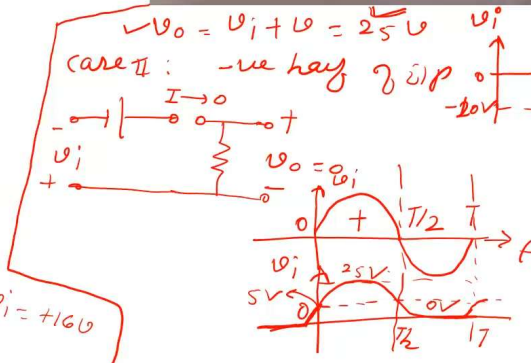 ✓v₀ = vᵢ + v = 25 v
case II : -ve half of i/p
I → 0
- +
vᵢ
+ -
v₀ =
vᵢ
0
-20v
vᵢ
0 + T/2 T
vᵢ 25V
5V 0 0V
T/2 T
vᵢ = +16v